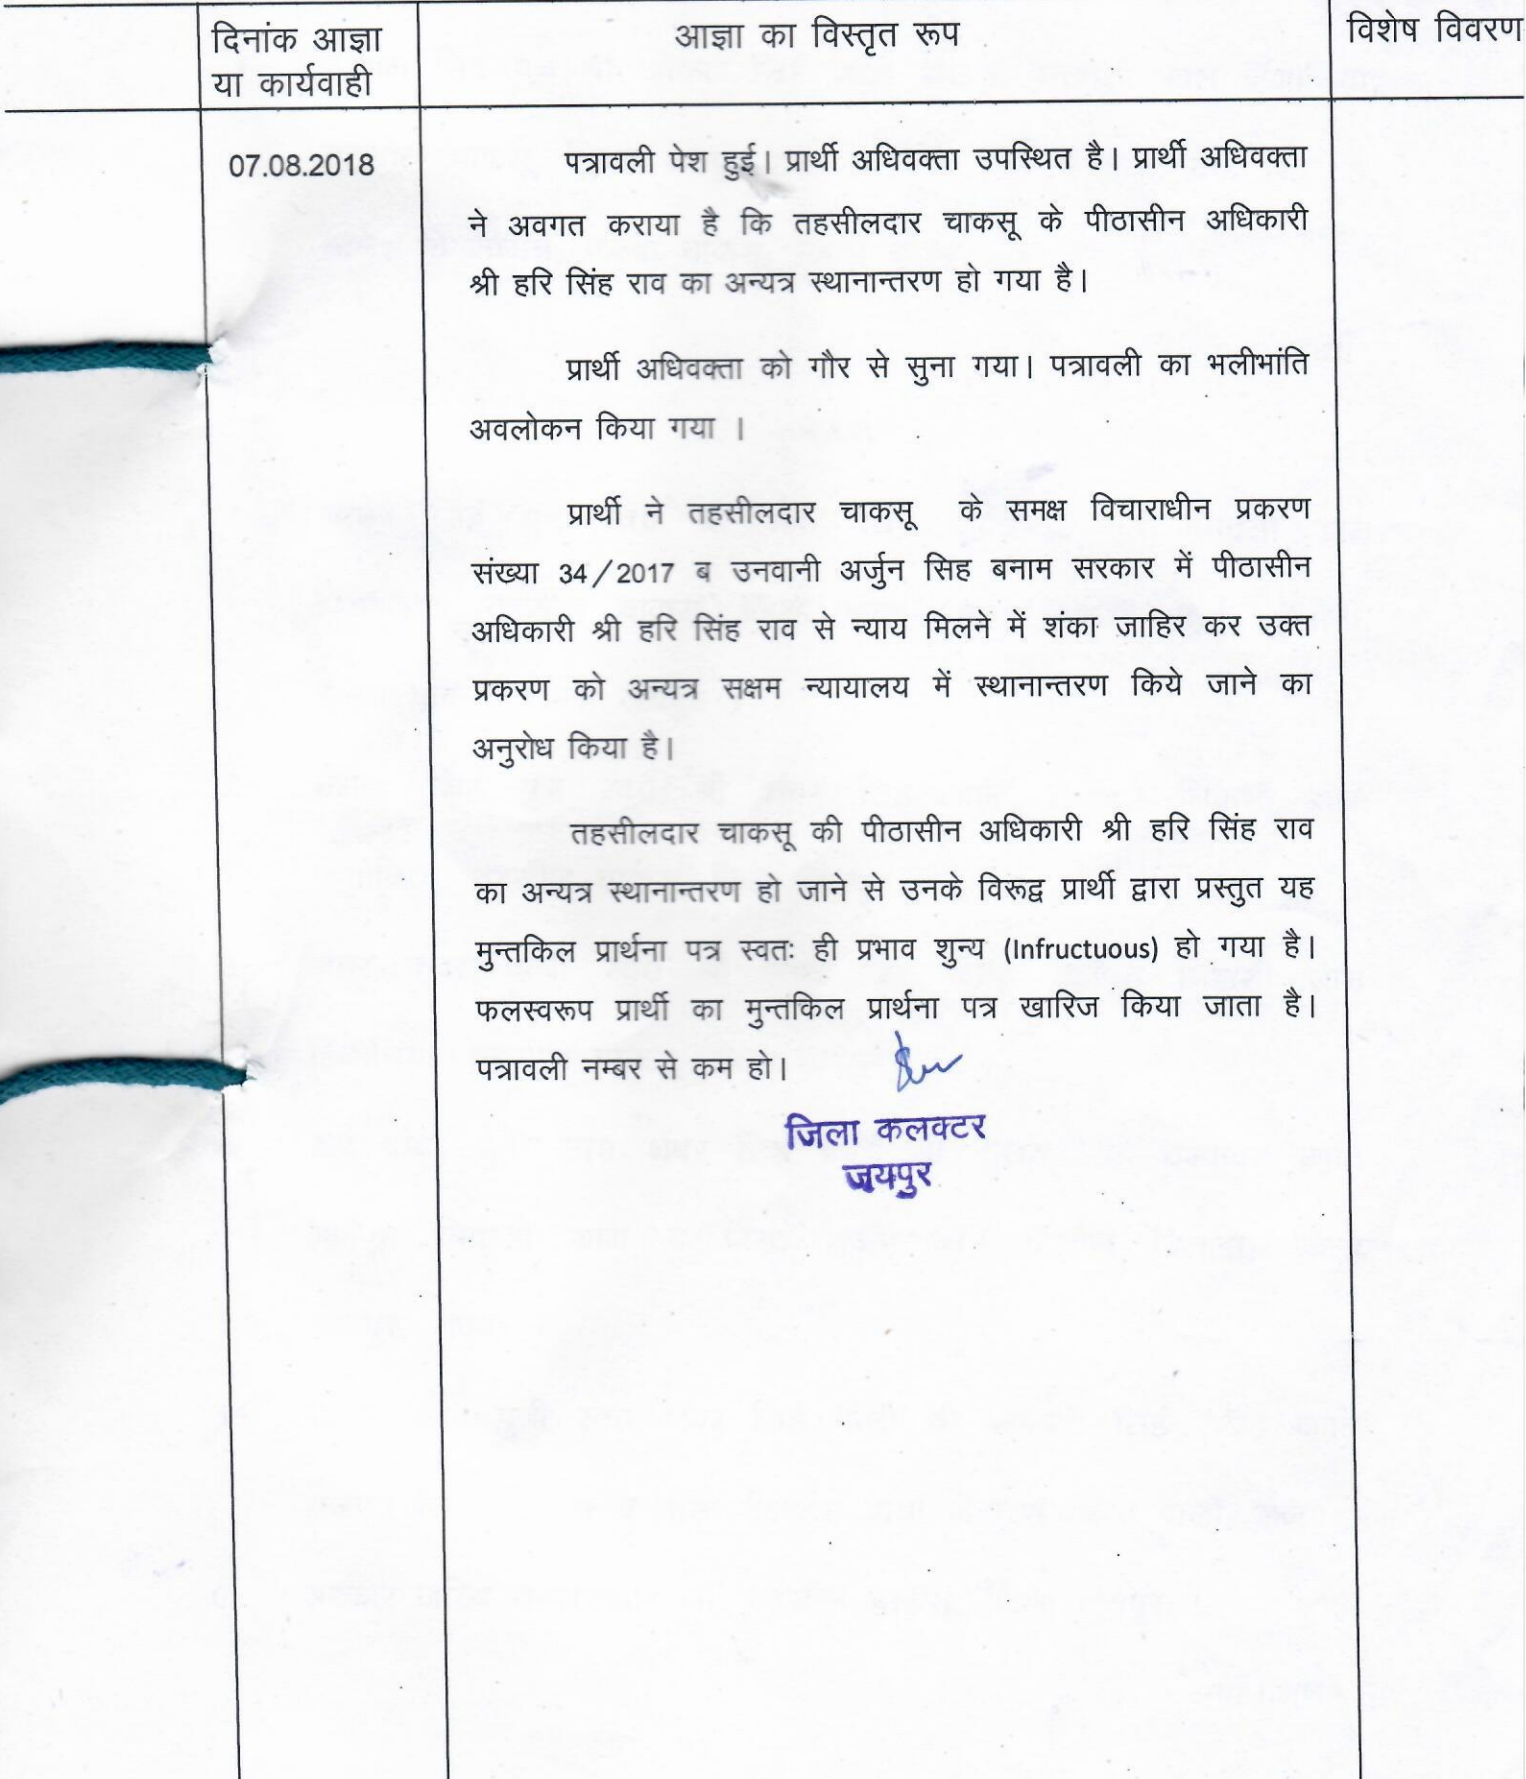 दिनांक आज्ञा
या कार्यवाही
आज्ञा का विस्तृत रूप
विशेष विवरण
07.08.2018
पत्रावली पेश हुई। प्रार्थी अधिवक्ता उपस्थित है। प्रार्थी अधिवक्ता
ने अवगत कराया है कि तहसीलदार चाकसू के पीठासीन अधिकारी
श्री हरि सिंह राव का अन्यत्र स्थानान्तरण हो गया है।
प्रार्थी अधिवक्ता को गौर से सुना गया। पत्रावली का भलीभांति
अवलोकन किया गया ।
प्रार्थी ने तहसीलदार चाकसू के समक्ष विचाराधीन प्रकरण
संख्या 34/2017 ब उनवानी अर्जुन सिह बनाम सरकार में पीठासीन
अधिकारी श्री हरि सिंह राव से न्याय मिलने में शंका जाहिर कर उक्त
प्रकरण को अन्यत्र सक्षम न्यायालय में स्थानान्तरण किये जाने का
अनुरोध किया है।
तहसीलदार चाकसू की पीठासीन अधिकारी श्री हरि सिंह राव
का अन्यत्र स्थानान्तरण हो जाने से उनके विरूद्व प्रार्थी द्वारा प्रस्तुत यह
मुन्तकिल प्रार्थना पत्र स्वतः ही प्रभाव शुन्य (Infructuous) हो गया है।
फलस्वरूप प्रार्थी का मुन्तकिल प्रार्थना पत्र खारिज किया जाता है।
पत्रावली नम्बर से कम हो।
जिला कलक्टर
जयपुर